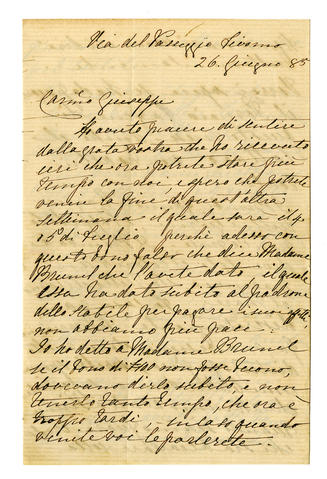 Via del Passeggio Livorno
26. Giugno 85
Carino Giuseppe
Ho avuto piacere di sentire
dalla grata vostra che ho ricevuto
ieri che ora potrete stare più
tempo con noi e spero che potrete
venire la fine di quest'altra
settimana il quale sarà il g.
5 di Luglio perchè adesso con
questo bono falso che dice Madame
Brunel che l'avete dato il quale
essa ha dato subito al padrone
dello stabile per pagare i suoi
non abbiamo più pace.
Io ho detto a Madame Brunel
se il bono di non fosse buono,
dovevano dirlo subito, e non
tenerlo tanto tempo, che ora è
troppo tardi, in caso quando
venite voi le parlerete.